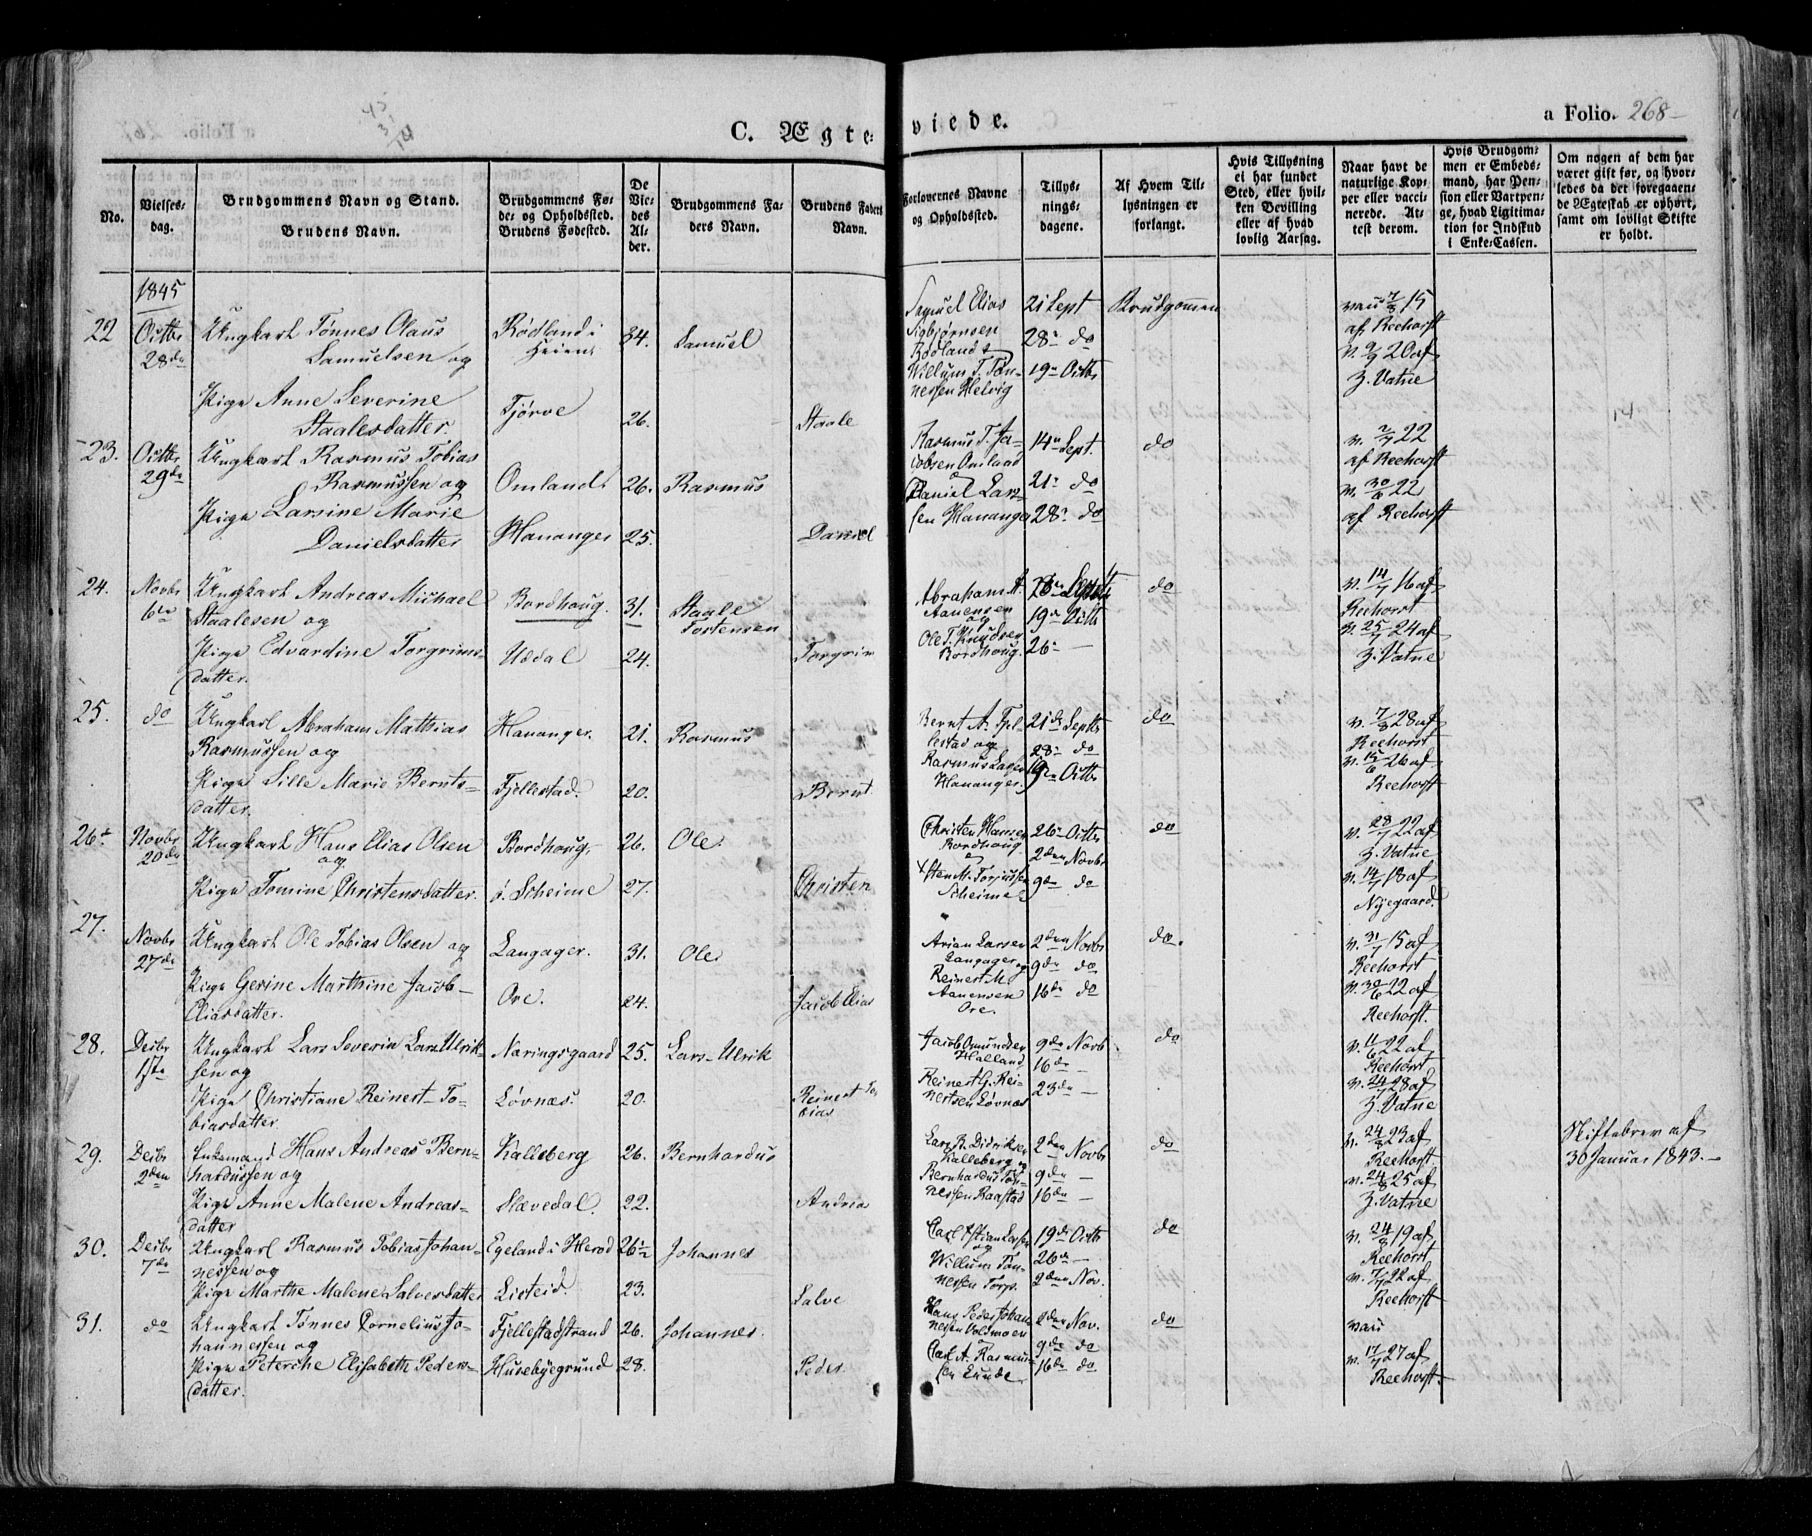 C. Ægteviede. a Folio. 268
No.
Vielses-dag.
Brudgommens Navn og Stand. Brudens Navn.
Brudgommens Fø-de- og Opholdssted. Brudens Fødested.
De Vie-des Al-der.
Brudgommens Fa-ders Navn.
Brudens Faders Navn.
Forlovernes Navne og Opholdssted.
Tillys-nings-dagene.
Af Hvem Til-lysningen er forlangt.
Hvis Tillysning ei har fundet Sted, eller hvil-ken Bevilling eller af hvad lovlig Aarsag.
Naar havt de naturlige Kop-per eller vacci-nerede. At-test derom.
Hvis Brudgom-men er Embeds-mand, har Pen-sion eller Vartpen-ge, hvad Ligitima-tion for Indskud i Enke-Cassen.
Om nogen af dem har været gift før, og hvor-ledes da det foregaaen-de Ægteskab er ophørt, samt om lovligt Skifte er holdt.
1845
22 Octbr 28de Ungkarl Tønnes Olaus Samuelsen og Rødland i Heien 34. Samuel
Pige Anne Severine Staalesdatter. Tjørve 26. Staale
Samuel Elias Sigbjørnsen Rødland & Willum T. Tønnessen Helvig
21 Sept 28 do 19 Octbr Brudgommen
vau 7/8 15 af Reehorst v. 2/9 20 af Z. Vatne
23. Octbr 29de Ungkarl Rasmus Tobias Rasmussen og Omland 26. Rasmus
Pige Larsine Marie Danielsdatter Hananger 25. Daniel
Rasmus T. Jacobsen Omland & Daniel Larsen Hananger
14 Sept. 21 do 28 do do
v. 2/7 22 af Reehorst v. 30/6 22 af Reehorst
24. Novbr 6te Ungkarl Andreas Michael Staalesen og Bordhoug. 31. Staale Torstensen
Pige Edvardine Torgrimsdatter. Uddal 24. Torgrim
Abraham A. Aanensen og Ole T. Knudsen Bordhoug.
28 Septbr 19 Octb 26 — do
v. 14/7 16 af Reehorst v. 25/7 24 af Z. Vatne
25. do Ungkarl Abraham Mathias Rasmussen og Hananger. 21. Rasmus
Pige Sille Marie Berntsdatter. Fjellestad. 20. Bernt
Bernt A. Fjellestad og Rasmus Larsen Hananger.
21de Septbr 28 do 19 Octbr do
v. 7/8 28 af Reehorst v. 15/6 26 af Reehorst
26 Novbr 20de Ungkarl Hans Elias Olsen og Bordhoug. 26. Ole
Pige Tomine Christensdatter. ø. Skeime 27. Christen
Christen Hansen Bordhoug & Sten M. Torjussen Skeime
26 Octbr 2den Novbr 9de do do
v. 28/7 22 af Z. Vatne v. 14/7 18 af Nyegaard.
27. Novbr 27de Ungkarl Ole Tobias Olsen og Langager. 31. Ole
Pige Gerine Marthine Jacob-Eliasdatter. Ore. 24. Jacob Elias
Arian Larsen Langager og Reinert M. Aanensen Ore.
2den Novbr 9de do 16de do do.
v. 31/7 15 af Reehorst v. 30/6 22 af Reehorst.
28. Decbr 1ste Ungkarl Lars Severin Lars-Ulriksen og Næringsgaard 25. Lars-Ulrik
Pige Christiane Reinert-Tobiasdatter. Løvnæs. 20. Reinert Tobias
Jacob Omundsen Halland Reinert G. Reinertsen Løvnæs
9de Novb. 16de — 23de — do
v. 11/6 22 af Reehorst v. 24/7 28 af Z. Vatne
29. Decbr 2den Enkemand Hans Andreas Bernhardussen og Kalleberg 26. Bernhardus
Pige Anne Malene Andreasdatter Slævedal. 22. Andreas
Lars B. Didriksen Kalleberg og Bernhardus Tønnessen Raastad
2den Novbr 9de — 16de — do
v. 24/8 23 af Reehorst v. 24/8 25 af Z. Vatne
Skiftebrev af 30 Januar 1843.
30. Decbr 7de Ungkarl Rasmus Tobias Johannessen og Egeland i Herad 26½ Johannes
Pige Marthe Malene Salvesdatter Listeid. 23. Salve
Carl Kstian Larsen og Willum Tønnessen Torp.
19de Octbr 26de — 2den Nov. do
v. 24/8 19 af Reehorst v. 7/7 22 af Reehorst
31. do Ungkarl Tønnes Cornelius Johannessen og Fjellestadstrand 26. Johannes.
Pige Peterche Elisabeth Pedersdatter. Husebyegrund 28. Peder
Hans Peder Johannesen Voldmoen Carl A. Rasmussen Lunde
2den Nov. 9de do 16de do do
vau v. 17/7 27 af Reehorst.